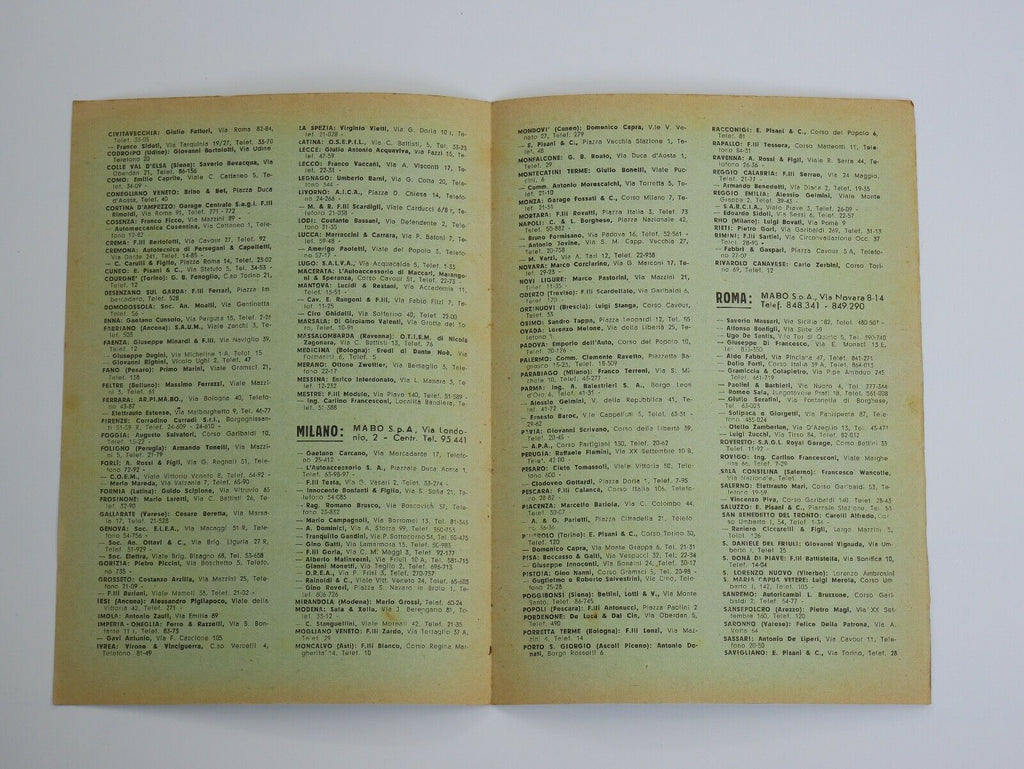 CIVITAVECCHIA: Giulio Fattori, Via Roma 82-84,
- Franco Sidoti, Via Tarquinia 19/27, Telef. 33-70
CODROIPO (Udine): Giovanni Bortolotti, Via Udine
Telefono 20
COLLE VAL D'ELSA (Siena): Saverio Bevacqua, Via
COMO: Emilio Caprile, Viale C. Cattaneo 5, Te-
lef. 34-09 -
CONEGLIANO VENETO: Brino & Bet, Piazza Duca
d'Aosta, Telef. 40
CORTINA D'AMPEZZO: Garage Centrale S.a.g.l. F.lli
Rimoldi, Via Roma 91, Telef. 771 - 772
COSENZA: Franco Ficco, Via Mazzini 89 -
- Automeccanica Cosentina, Via Cattaneo 1, Te-
CREMA: F.lli Bertolotti, Via Cavour 27, Telef. 92
CREMONA: Autotecnica di Persegani & Capelletti,
Via Dante 241, Telef. 14-85 -
- C. Carulli & Figlio, Piazza Roma 14, Telef. 23-02
CUNEO: E. Pisani & C., Via Statuto 5, Tel. 34-53 -
COURGNE' (Torino): G. B. Fenoglio, C.so Torino 21,
Telef. 12
DESENZANO SUL GARDA: F.lli Ferrari, Piazza Im-
barcadero, Telef. 528
DOMODOSSOLA: Soc. An. Moalli, Via Gentinotta
Telef. 56
ENNA: Gaetano Cunsolo, Via Pergusa 15, Telef. 2-26
FABRIANO (Ancona): S.A.U.M., Viale Zonchi 3, Te-
lef. 503
FAENZA: Giuseppe Minardi & F.lli, Via Naviglio 39,
Telef. 12
- Giuseppe Dugini, Via Micheline 1-A, Telef. 15
- Giovanni Righini, Vicolo Ughi 2, Telef. 47
FANO (Pesaro): Primo Marini, Viale Gramsci 21,
Telef. 138
FELTRE (Belluno): Massimo Ferrazzi, Viale Mazzi-
ni 3, Telef. 61
FERRARA: AR.PI.MA.BO., Via Bologna 40, Telefo-
no 43-87
- Elettrauto Estense, Via Marlborghetto 9, Tel. 46-77
FIRENZE: Corradino Corradi S.r.l., Borgognissan-
ti 51-59 R, Telef. 24-609 - 24-610 -
FOGGIA: Augusto Salvatori, Corso Garibaldi 10,
Telef. 15-22 -
FOLIGNO (Perugia): Armando Tonelli, Via Mazzi-
ni 5, Telef. 21-79
FORLÌ: A. Rossi & Figli, Via G. Regnoli 51, Telefo-
no 72-92 -
- C.O.E.M., Viale Vittorio Veneto 8, Telef. 64-92 -
- Mario Mareda, Via Valzania 7, Telef. 65-90
FORMIA (Latina): Guido Scipione, Via Vitruvio 65
FROSINONE: Mario Loreti, Via C. Battisti 26, Te-
lef. 32-90
GALLARATE (Varese): Cesare Beretta, Via Marsa-
la 17, Telef. 21-528
GENOVA: Soc. E.L.E.A., Via Macaggi 51 R, Telefo-
no 54-756 -
- Soc. An. Ottavi & C., Via Brig. Liguria 27 R,
Telef. 51-929 -
- Soc. Dentra, Viale Brig. Bisagno 68, Tel. 53-658
GORIZIA: Pietro Piccini, Via Boschetto 5, Telefo-
no 735 -
GROSSETO: Costanzo Arzilla, Via Mazzini 25, Tele-
fono 21-09 -
- F.lli Buriani, Viale Mameli 58, Telef. 21-02 -
IESI (Ancona): Alessandro Pigliapoco, Viale della
Vittoria 42, Telef. 271 -
IMOLA: Antonio Zauli, Via Emilia 89
IMPERIA - ONEGLIA: Ferro & Razzelli, Via S. Bon-
fante 11 r, Telef. 83-73
- Gavi Antunio, Via F. Cascione 105
IVREA: Virone & Vinciguerra, C.so Vercelli 4,
Telefono 81-49
LA SPEZIA: Virginio Vietti, Via G. Doria 10 r, Te-
lef. 21-028 -
LATINA: O.S.E.P.I.L., Via C. Battisti, 5, Tel. 33-23
LECCE: Giulio Antonio Acquaviva, Via Fazzi 15, Te-
lef. 47-59
LECCO: Franco Vaccani, Via A. Visconti 17, Te-
lef. 22-31 -
LEGNAGO: Umberto Barni, Via G. Cotta 20, Tele-
fono 344 -
LIVORNO: A.I.C.A., Piazza D. Chiesa 14, Telefo-
no 24-266 -
- M. & R. F.lli Scardigli, Viale Carducci 6/8 r, Te-
lefono 21-038 -
LODI: Costante Bassani, Via Defendente 2, Tele-
fono 31-35
LUCCA: Marraccini & Carrara, Via P. Batoni 7, Te-
lef. 39-48 -
- Amerigo Paoletti, Viale del Popolo 5, Telefo-
no 57-17 -
LUGO: S.A.L.V.A., Via Acquacalda 5, Telef. 5-35
MACERATA: L'Autoaccessorio di Maccari, Marango-
ni & Speranza, Corso Cavour 51, Telef. 22-73 -
MANTOVA: Lucidi & Restani, Via Accademia 11,
Telef. 15-51 -
- Cav. E. Rangoni & F.lli, Via Fabio Filzi 7, Te-
lef. 11-25 -
- Ciro Ghidelli, Via Solferino 40, Telef. 22-00
MARSALA: Di Girolamo Valenti, Via Grotta del To-
ro, Telef. 10-91
MESSALOMBARDA (Ravenna): O.T.I.E.M. di Nicola
Zagonara, Via C. Battisti 13, Telef. 76
MEDICINA (Bologna): Eredi di Dante Noè, Via
MERANO: Ottone Zwettler, Via Bersaglio 3, Telefo-
no 22-17
MESSINA: Enrico Interdonato, Via L. Manara 3, Te-
lef. 12-232
MESTRE: F.lli Modulo, Via Piave 140, Telef. 51-589
- Ing. Carlino Francesconi, Località Bandiera, Te-
lef. 51-388
MILANO: MABO S.p.A, Via Londo-
nio, 2 - Centr. Tel. 95 441
- Gaetano Carcano, Via Mercadante 17, Telefo-
no 25-412 -
- L'Autoaccessorio S. A., Piazzale Duca Aosta 1,
Telef. 63-98-97 -
- F.lli Testa, Via G. Vasari 2, Telef. 53-274 -
- Innocente Bonfanti & Figlio, Via S. Sofia 21, Te-
lefono 54-085
- Rag. Romano Brusco, Via Boscovich 57, Telefo-
no 23-832
- Mario Campagnoli, Via Borromei 13, Tel. 81-345
- A. Dominici, Via A. Sforza 99, Telef. 350-215
- Tranquillo Gandini, Via P. Sottocorno 54, Tel. 55-475
- Gino Gatti, Via Lanzarmora 15, Telef. 50-985
- F.lli Goria, Via C. M. Maggi 3, Telef. 92-177
- Alberto Malinverni, Via Friuli 10 A, Tel. 581-711
- Gianni Monetti, Via Teglio 2, Telef. 696-713
- O.R.E.A., Via P. Frisi 3, Telef. 270-757
- Rainoldi & C., Viale Vitt. Veneto 24, Telef. 65-685
- Gino Roveri, Piazza S. Nazaro in Brolo 1, Te-
lef. 808-726
MIRANDOLA (Modena): Mario Grossi, Telef. 60-24
MODENA: Sala & Zella, Via J. Berengario 81, Te-
lef. 33-12
- C. Stanguellini, Viale Moreali 42, Telef. 21-35
MOGLIANO VENETO: F.lli Zardo, Via Terraglio 37 A,
Telef. 29
MONCALVO (Asti): F.lli Bianco, Corso Regina Mar-
gherita 14, Telef. 10
MONDOVI' (Cuneo): Domenico Capra, V.le V. Ve-
neto 27, Telef. 279
- E. Pisani & C., Piazza Vecchia Stazione 1, Te-
lef. 48
MONFALCONE: G. B. Boato, Via Duca d'Aosta 1,
Telef. 29
MONTECATINI TERME: Giulio Bonelli, Viale Puc-
cini, 6
- Comm. Antonio Morescalchi, Via Torretta 5, Te-
lef. 21-10
MONZA: Garage Fossati & C., Corso Milano 7, Te-
lef. 21-51
MORTARA: F.lli Rovatti, Piazza Italia 3, Telef. 73
NAPOLI: C. & L. Borghese, Piazza Nazionale 42,
Telef. 50-882 -
- Bruno Formisano, Via Padova 16, Telef. 52-561 -
- Antonio Jovine, Via S. M. Capp. Vecchia 27,
Telef. 20-758
- M. Varzi, Via A. Tari 12, Telef. 22-938
NOVARA: Marco Corclarino, Via G. Marconi 17, Te-
lef. 29-23 -
NOVI LIGURE: Marco Pastorini, Via Mazzini 21,
Telef. 11-35 -
ODERZO (Treviso): F.lli Scardellato, Via Garibaldi 6,
Telef. 120
ORZINUOVI (Brescia): Luigi Stanga, Corso Cavour,
Telef. 33
OSIMO: Sandro Tappa, Piazza Leopardi 12, Tel. 55
OVADA: Lorenzo Melone, Via della Libertà 25, Te-
lefono 1
PADOVA: Emporio dell'Auto, Corso del Popolo 10,
Telef. 20-126 -
PALERMO: Comm. Clemente Ravetto, Piazzetta Ba-
PARABIAGO (Milano): Franco Terreni, Via S. Mi-
chele 10, Telef. 45-277
PARMA: Ing. A. Balestrieri S. A., Borgo Leon
d'Oro 6, Telef. 41-31 -
- Alessio Gelmini, V. della Repubblica 41, Te-
lef. 41-72 -
- Ernesto Baroc, V.le Cappellini 5, Telef. 63-31 -
29-62
PAVIA: Giovanni Scrivano, Corso della Libertà 39,
Telef. 20-45
- A.P.A., Corso Partigiani 150, Telef. 20-62
PERUGIA: Raffaele Fiamini, Via XX Settembre 10 B,
Telef. 42-80 -
PESARO: Cleto Tomassoli, Viale Vittoria 50, Tele-
fono 600 -
- Clodoveo Gottardi, Piazza Doria 1, Telef. 7-95
PESCARA: F.lli Calanca, Corso Italia 106, Telefo-
no 28-82 -
PIACENZA: Marcello Bariola, Via C. Colombo 44,
Telef. 50-07
- A. & G. Parietti, Piazza Cittadella 21, Telefo-
no 36-36
PINEROLO (Torino): E. Pisani & C., Corso Torino 50,
Telef. 120
- Domenico Capra, Via Monte Grappa 6, Tel. 21-31
PISA: Boccasso & Galti, Via Vespucci 32, Tel. 22-34
- Giuseppe Innocenti, Via Bonaini 24, Telef. 30-12
PISTOIA: Gino Nanni, Corso Gramsci 5, Tel. 20-98 -
- Guglielmo e Roberto Salvestrini, Via Cino, Tele-
fono 25-28
POGGIBONSI (Siena): Bettini, Lotti & V., Via Monte
Santo, Telef. 86-745
POPOLI (Pescara): F.lli Antonucci, Piazza Paolini 2
PORDENONE: De Luca & Dal Cin, Via Oberdan 5,
Telef. 490
PORRETTA TERME (Bologna): F.lli Lenzi, Via Maz-
zini 4, Telef. 14
PORTO S. GIORGIO (Ascoli Piceno): Antonio Do-
nati, Borgo Rosselli 6
RACCONIGI: E. Pisani & C., Corso del Popolo 6,
Telef. 81
RAPALLO: F.lli Tessera, Corso Matteotti 11, Tele-
fono 54-51
RAVENNA: A. Rossi & Figli, Viale R. Serra 44, Te-
lefono 26-36 -
REGGIO CALABRIA: F.lli Serrao, Via 24 Maggio,
Telef. 21-27 -
- Armando Benedetti, Via Diana 2, Telef. 19-35
REGGIO EMILIA: Alessio Gelmini, Viale Monte
Grappa 2, Telef. 39-43 -
- S.A.R.C.I.A., Viale Piave 3, Telef. 26-09 -
- Edoardo Sidoli, Via Sessi 6, Telef. 22-57
RHO (Milano): Luigi Bovati, Via Pomè 9
RIETI: Pietro Gori, Via Garibaldi 269, Telef. 31-13
RIMINI: F.lli Sartini, Via Circonvallazione Occ. 37
Telef. 28-95 -
- Fabbri & Gaspari, Piazza Cavour 5 A, Telefo-
no 27-07
RIVAROLO CANAVESE: Carlo Zerbini, Corso Tori-
no 69, Telef. 12
ROMA: MABO S.p.A., Via Novara 8-14
Telef. 848.341 - 849.290
- Saverio Massari, Via Sicilia 182, Telef. 480-501 -
- Alfonso Bonfigli, Via Sirte 59
- Ugo De Santis, V.le Tor di Quinto 5, Tel. 390-740
- Giuseppe Di Francesco, Via E. Monaci 13 E,
Telef. 855-350
- Aldo Fabbri, Via Pinciana 47, Telef. 841-271
- Delio Forti, Corso Italia 39 A, Telef. 864-013
- Gramiccia & Colapietro, Via Pde Amaduo 245
Telef. 461-719
- Paolini & Barbieri, Via Nuoro 4, Tel. 777-344
- Romeo Sala, Lungotevere Prati 18, Telef. 561-008
- Giulio Serafini, Via Fontanella di Borghese,
Tel. 63-003
- Solipaca e Giorgetti, Via Panisperna 87, Telefo-
no 485-024
- Otello Zamberlan, Via D'Azeglio 13, Tel. 45-471
- Luigi Zucchi, Via Tirso 84, Telef. 82-032
ROVERETO: S.A.G.I. Royal Garage, Corso Bettini 33
Telef. 11-97
ROVIGO: Ing. Carlino Francesconi, Viale Marghe-
rita 66, Telef. 7-29
SALA CONSILINA (Salerno): Francesco Wancolle,
Via Nazionale, Telef. 1
SALERNO: Elettrauto Mari, Corso Garibaldi 53, Telef.
19-59
- Vincenzo Piva, Corso Garibaldi 140, Telef. 28-43
SALUZZO: E. Pisani & C., Piazzale Stazione, Tel. 53
SAN BENEDETTO DEL TRONTO: Carelli Alfredo, Cor-
so Umberto I, 34, Telef. 1-34 -
- Reniero Ciccarelli & Figli, Largo Mazzini 5,
Telef. 126
S. DANIELE DEL FRIULI: Giovanni Vignuda, Via Um-
berto I, Telef. 25
S. DONÀ DI PIAVE: F.lli Battistella, Via Bonifica 10,
Telef. 14-04
S. LORENZO NUOVO (Viterbo): Lorenzo Ambrosini
S. MARIA CAPUA VETERE: Luigi Merola, Corso Um-
berto I, 142, Telef. 105
SANREMO: Autoricambi L. Bruzzone, Corso Gari-
baldi 2, Telef. 54-77
SANSEPOLCRO (Arezzo): Pietro Magi, Via XX Set-
tembre 160, Telef. 120
SARONNO (Varese): Felice Della Patrona, Via A.
Volta 64
SASSARI: Antonio De Liperi, Via Cavour 11, Telefo-
no 20-50
SAVIGLIANO: E. Pisani & C., Via Torino, Telef. 28